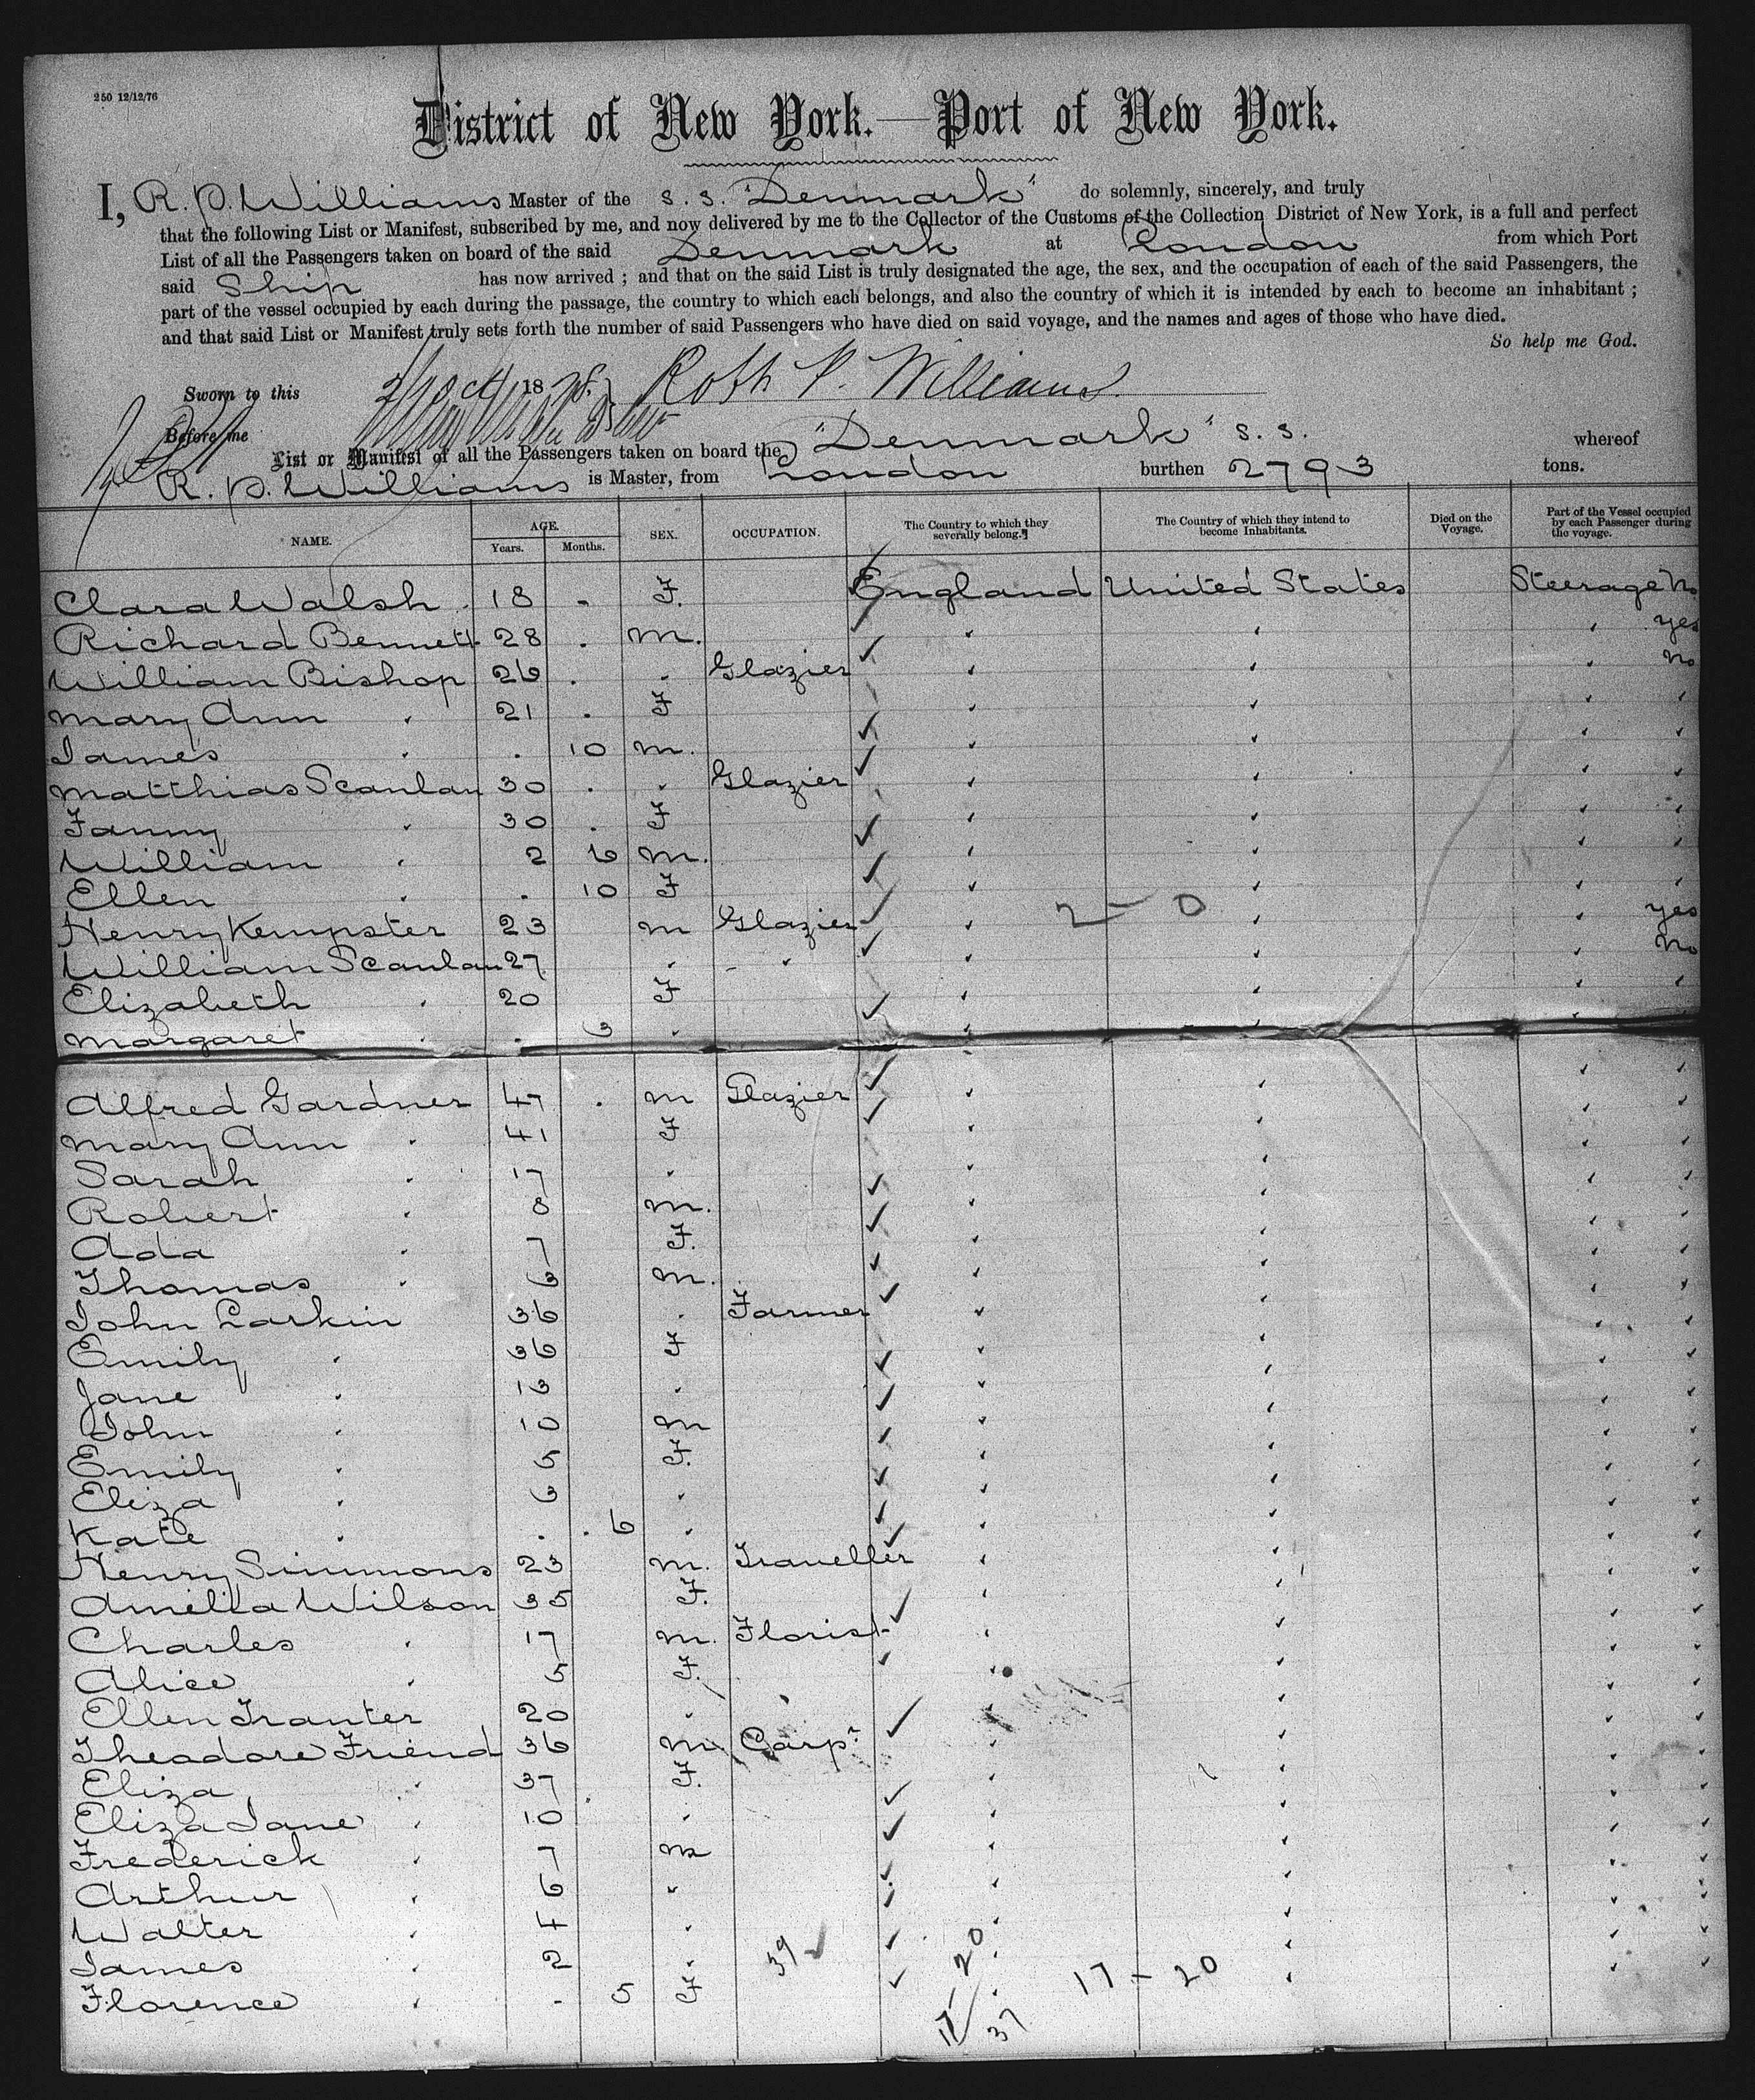 250 12/12/76
District of New York.—Port of New York.
I, R. P. Williams Master of the S. S. "Denmark" do solemnly, sincerely, and truly
that the following List or Manifest, subscribed by me, and now delivered by me to the Collector of the Customs of the Collection District of New York, is a full and perfect
List of all the Passengers taken on board of the said Denmark at London from which Port
said Ship has now arrived ; and that on the said List is truly designated the age, the sex, and the occupation of each of the said Passengers, the
part of the vessel occupied by each during the passage, the country to which each belongs, and also the country of which it is intended by each to become an inhabitant ;
and that said List or Manifest truly sets forth the number of said Passengers who have died on said voyage, and the names and ages of those who have died.
So help me God.
Sworn to this Oct 18 P. Williams
Before me
List or Manifest of all the Passengers taken on board the "Denmark" S. S. whereof
R. P. Williams is Master, from London burthen 2793 tons.
NAME. AGE. Years. Months. SEX. OCCUPATION. The Country to which they severally belong. The Country of which they intend to become Inhabitants. Died on the Voyage. Part of the Vessel occupied by each Passenger during the voyage.
Clara Walsh 18 F. England United States Steerage No
Richard Bennett 28 M. yes
William Bishop 26 Glazier No
Mary Ann 21 F
James 10 M.
Matthias Scanlan 30 Glazier
Fanny 30 F
William 2 6 M.
Ellen 10 F
Henry Kempster 23 M Glazier 2 - 0 yes
William Scanlan 27 No
Elizabeth 20 F
Margaret 3
Alfred Gardner 47 M Glazier
Mary Ann 41 F
Sarah 17
Robert 8 M.
Ada 7 F.
Thomas 3 M.
John Larkin 36 Farmer
Emily 36 F
Jane 13
John 10 M
Emily 5 F.
Eliza 3
Kate 6
Henry Simmons 23 M. Traveller
Amelia Wilson 35 F.
Charles 17 M. Florist
Alice 5 F.
Ellen Tranter 20
Theodore Friend 36 M Carpr
Eliza 37 F.
Eliza Jane 10
Frederick 7 M
Arthur 6
Walter 4
James 2 39 20
Florence 5 F 17 - 20
17 37